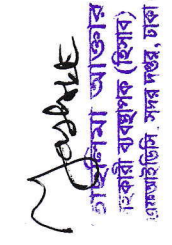 তাছলিমা আক্তার
সহকারী ব্যবস্থাপক (হিসাব)
এমআইডিসি, সদর দপ্তর, ঢাকা